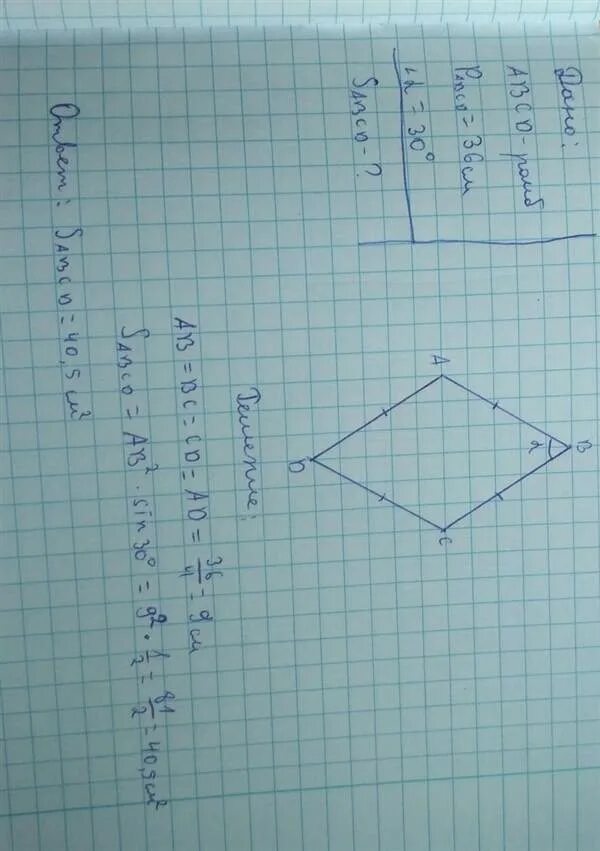 Дано:
ABCD - ромб
P_ABCD = 36 см
∠α = 30°
S_ABCD - ?
A
B
α
C
D
Решение:
AB = BC = CD = AD = 36/4 = 9 см
S_ABCD = AB² · sin 30° = 9² · 1/2 = 81/2 = 40,5 см²
Ответ: S_ABCD = 40,5 см²